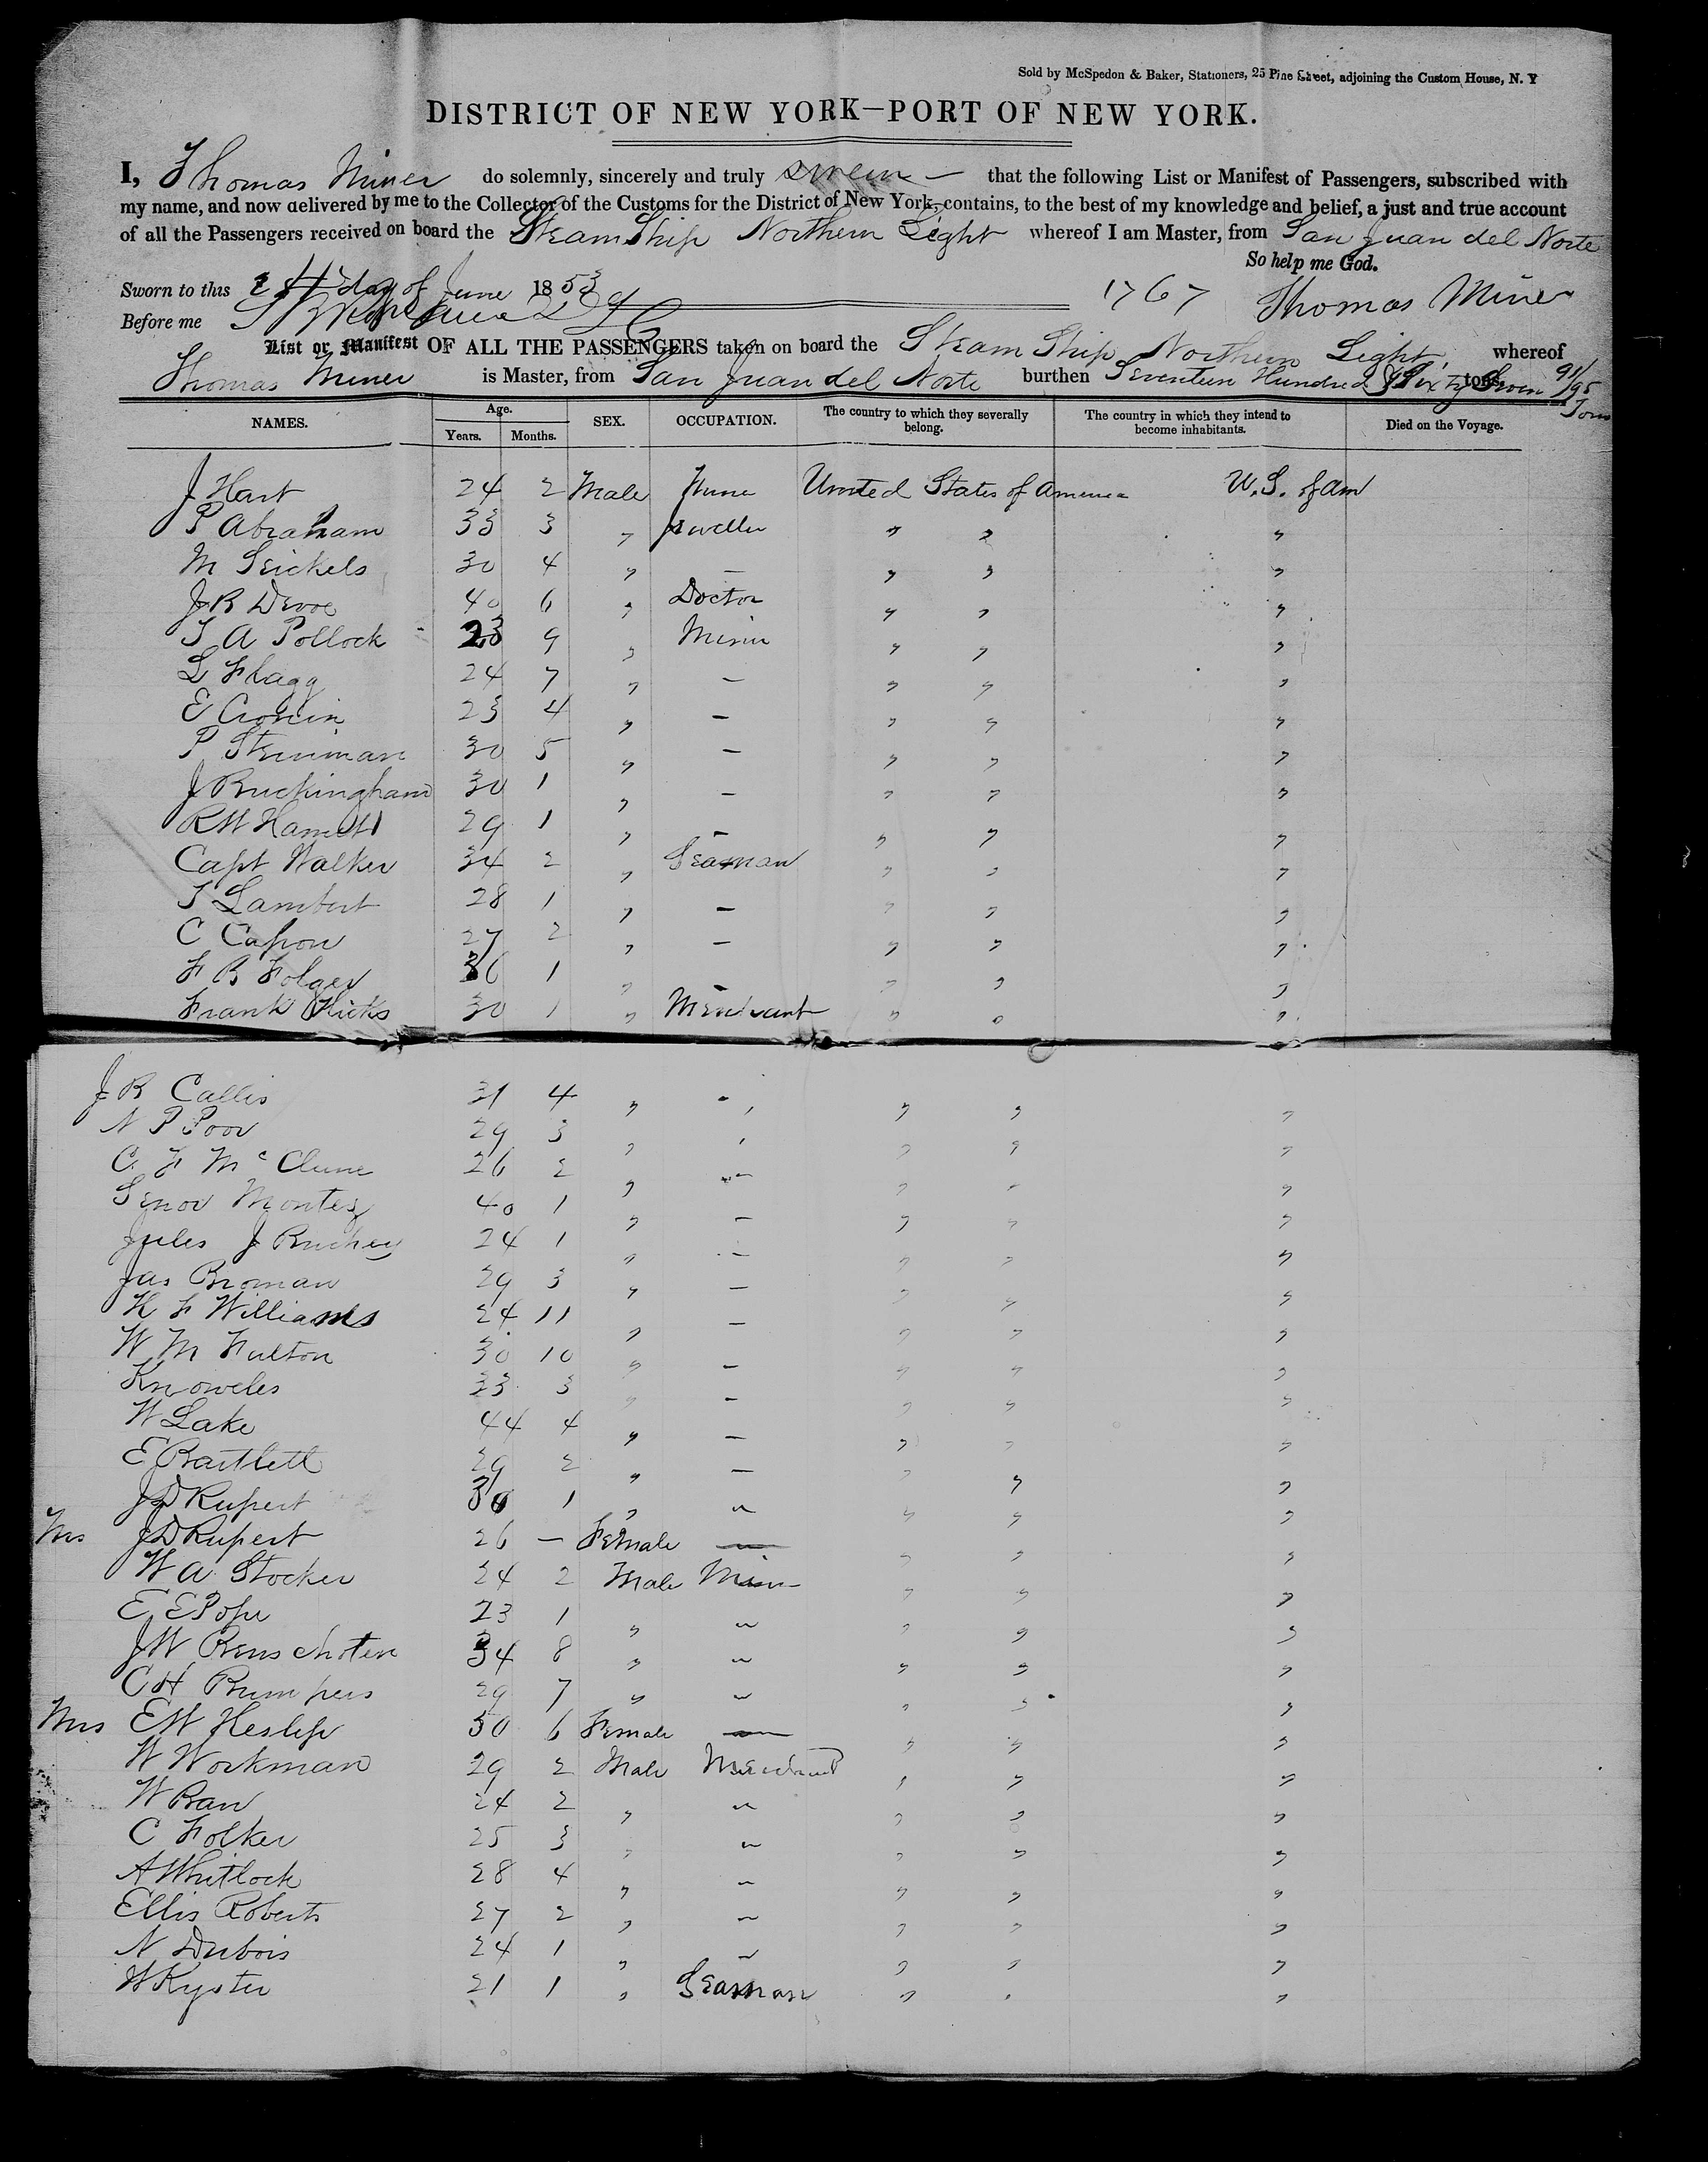 Sold by McSpedon & Baker, Stationers, 25 Pine Street, adjoining the Custom House, N. Y
DISTRICT OF NEW YORK—PORT OF NEW YORK.
I, Thomas Miner do solemnly, sincerely and truly swear that the following List or Manifest of Passengers, subscribed with
my name, and now delivered by me to the Collector of the Customs for the District of New York, contains, to the best of my knowledge and belief, a just and true account
of all the Passengers received on board the Steam Ship Northern Light whereof I am Master, from San Juan del Norte
So help me God.
Sworn to this 24 day of June 1853 1767 Thomas Miner
Before me
List or Manifest OF ALL THE PASSENGERS taken on board the Steam Ship Northern Light whereof
Thomas Miner is Master, from San Juan del Norte burthen Seventeen Hundred & Sixty Seven 91/95 tons. Tons
NAMES. Age. Years. Months. SEX. OCCUPATION. The country to which they severally belong. The country in which they intend to become inhabitants. Died on the Voyage.
J Hart 24 2 Male United States of America U.S. of Am
P Abraham 33 3 " Jeweller " " "
M Seickels 30 4 " — " " "
J R Devoe 40 6 " Doctor " " "
S A Pollock 23 9 " Miner " " "
L Flagg 24 7 " — " " "
E Cronin 23 4 " — " " "
P Steinman 30 5 " — " " "
J Buckingham 30 1 " — " " "
R W 29 1 " — " " "
Capt Walker 34 2 " Seaman " " "
S Lambert 28 1 " — " " "
C Capron 27 2 " — " " "
F B Folger 36 1 " — " " "
Frank Hicks 30 1 " Merchant " " "
J R Callis 31 4 " " " " "
N P Poor 29 3 " " " " "
C. F McClune 26 2 " — " " "
Senor Montez 40 1 " — " " "
Jules J 24 1 " — " " "
Jas Broman 29 3 " — " " "
H F Williams 24 11 " — " " "
W M Fulton 30 10 " — " " "
Knoweles 33 3 " — " " "
W Lake 44 4 " — " " "
E Bartlett 29 2 " — " " "
J D Rupert 1 " " " " "
Mrs J D Rupert 26 — Female — " " "
W A Stocker 24 2 Male Miner " " "
E E Pope 23 1 " " " " "
J W Renschoten 34 8 " " " " "
C H Bumpus 29 7 " " " " "
Mrs E W Heslep 30 6 Female — " " "
W Workman 29 2 Male Merchant " " "
W Rau 24 2 " " " " "
C Folker 25 3 " " " " "
A Whitlock 28 4 " " " " "
Ellis Roberts 27 2 " " " " "
N Dubois 24 1 " " " " "
W Kyster 21 1 " Seaman " " "